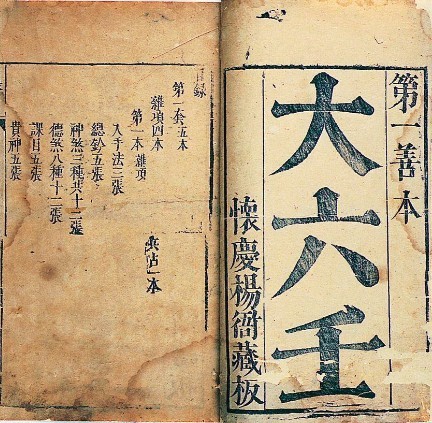 第一善本
大六壬
懷慶楊衙藏板
目錄
第一套五本
雜項四本 兵占一本
第一本 雜項
入手法三張
總鈐五張
神煞三種共十二張
德煞八種十二張
課目五張
貴神五張